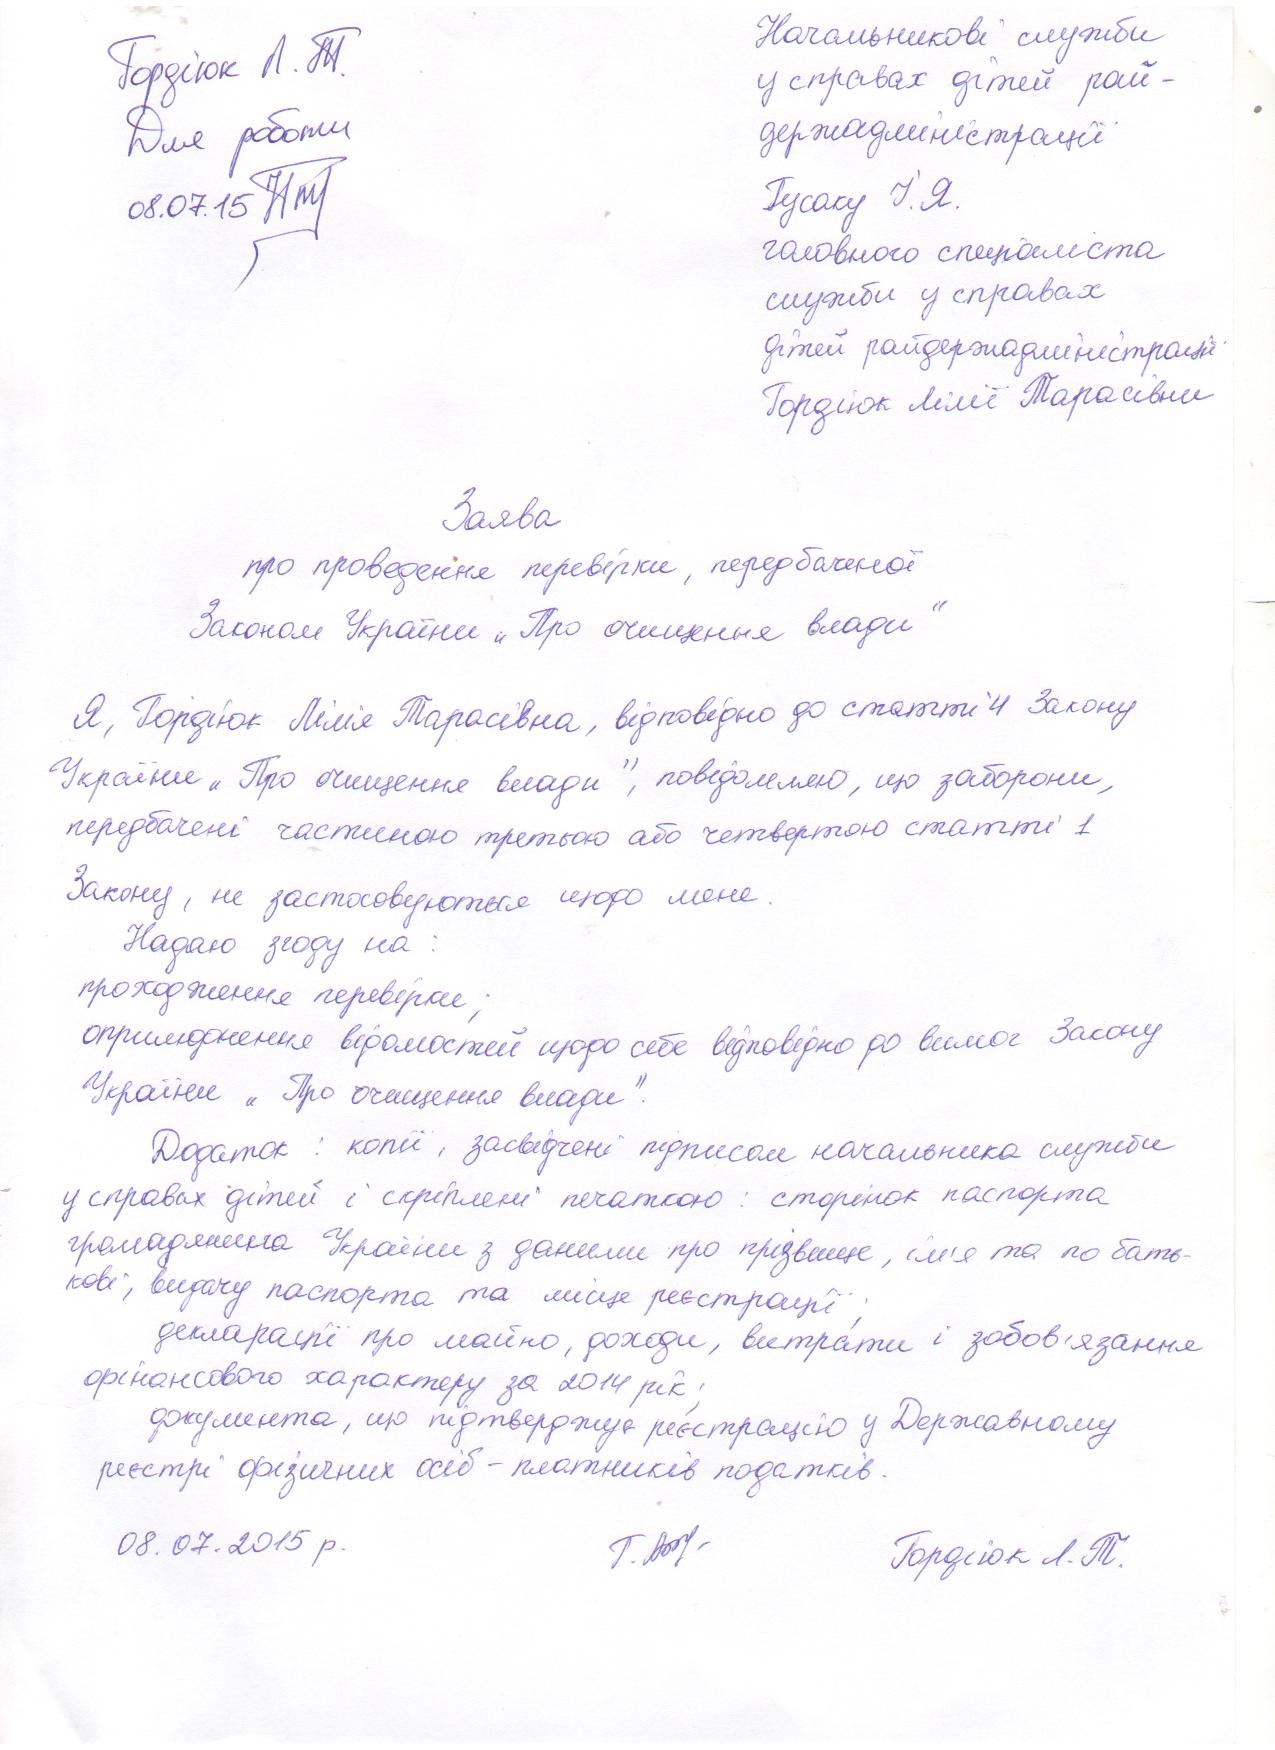 Гордіюк Л.Т.
Для роботи
08.07.15
Начальникові служби
у справах дітей рай-
держадміністрації
Гусаку І.Я.
головного спеціаліста
служби у справах
дітей райдержадміністрації
Гордіюк Лілії Тарасівни
Заява
про проведення перевірки, передбаченої
Законом України „Про очищення влади"
Я, Гордіюк Лілія Тарасівна, відповідно до статті 4 Закону
України „Про очищення влади", повідомляю, що заборони,
передбачені частиною третьою або четвертою статті 1
Закону, не застосовуються щодо мене.
Надаю згоду на:
проходження перевірки;
оприлюднення відомостей щодо себе відповідно до вимог Закону
України „Про очищення влади".
Додаток: копії, засвідчені підписом начальника служби
у справах дітей і скріплені печаткою: сторінок паспорта
громадянина України з даними про прізвище, ім'я та по бать-
кові, видачу паспорта та місце реєстрації;
декларації про майно, доходи, витрати і зобов'язання
фінансового характеру за 2014 рік;
документа, що підтверджує реєстрацію у Державному
реєстрі фізичних осіб - платників податків.
08.07.2015 р.
Гордіюк Л.Т.